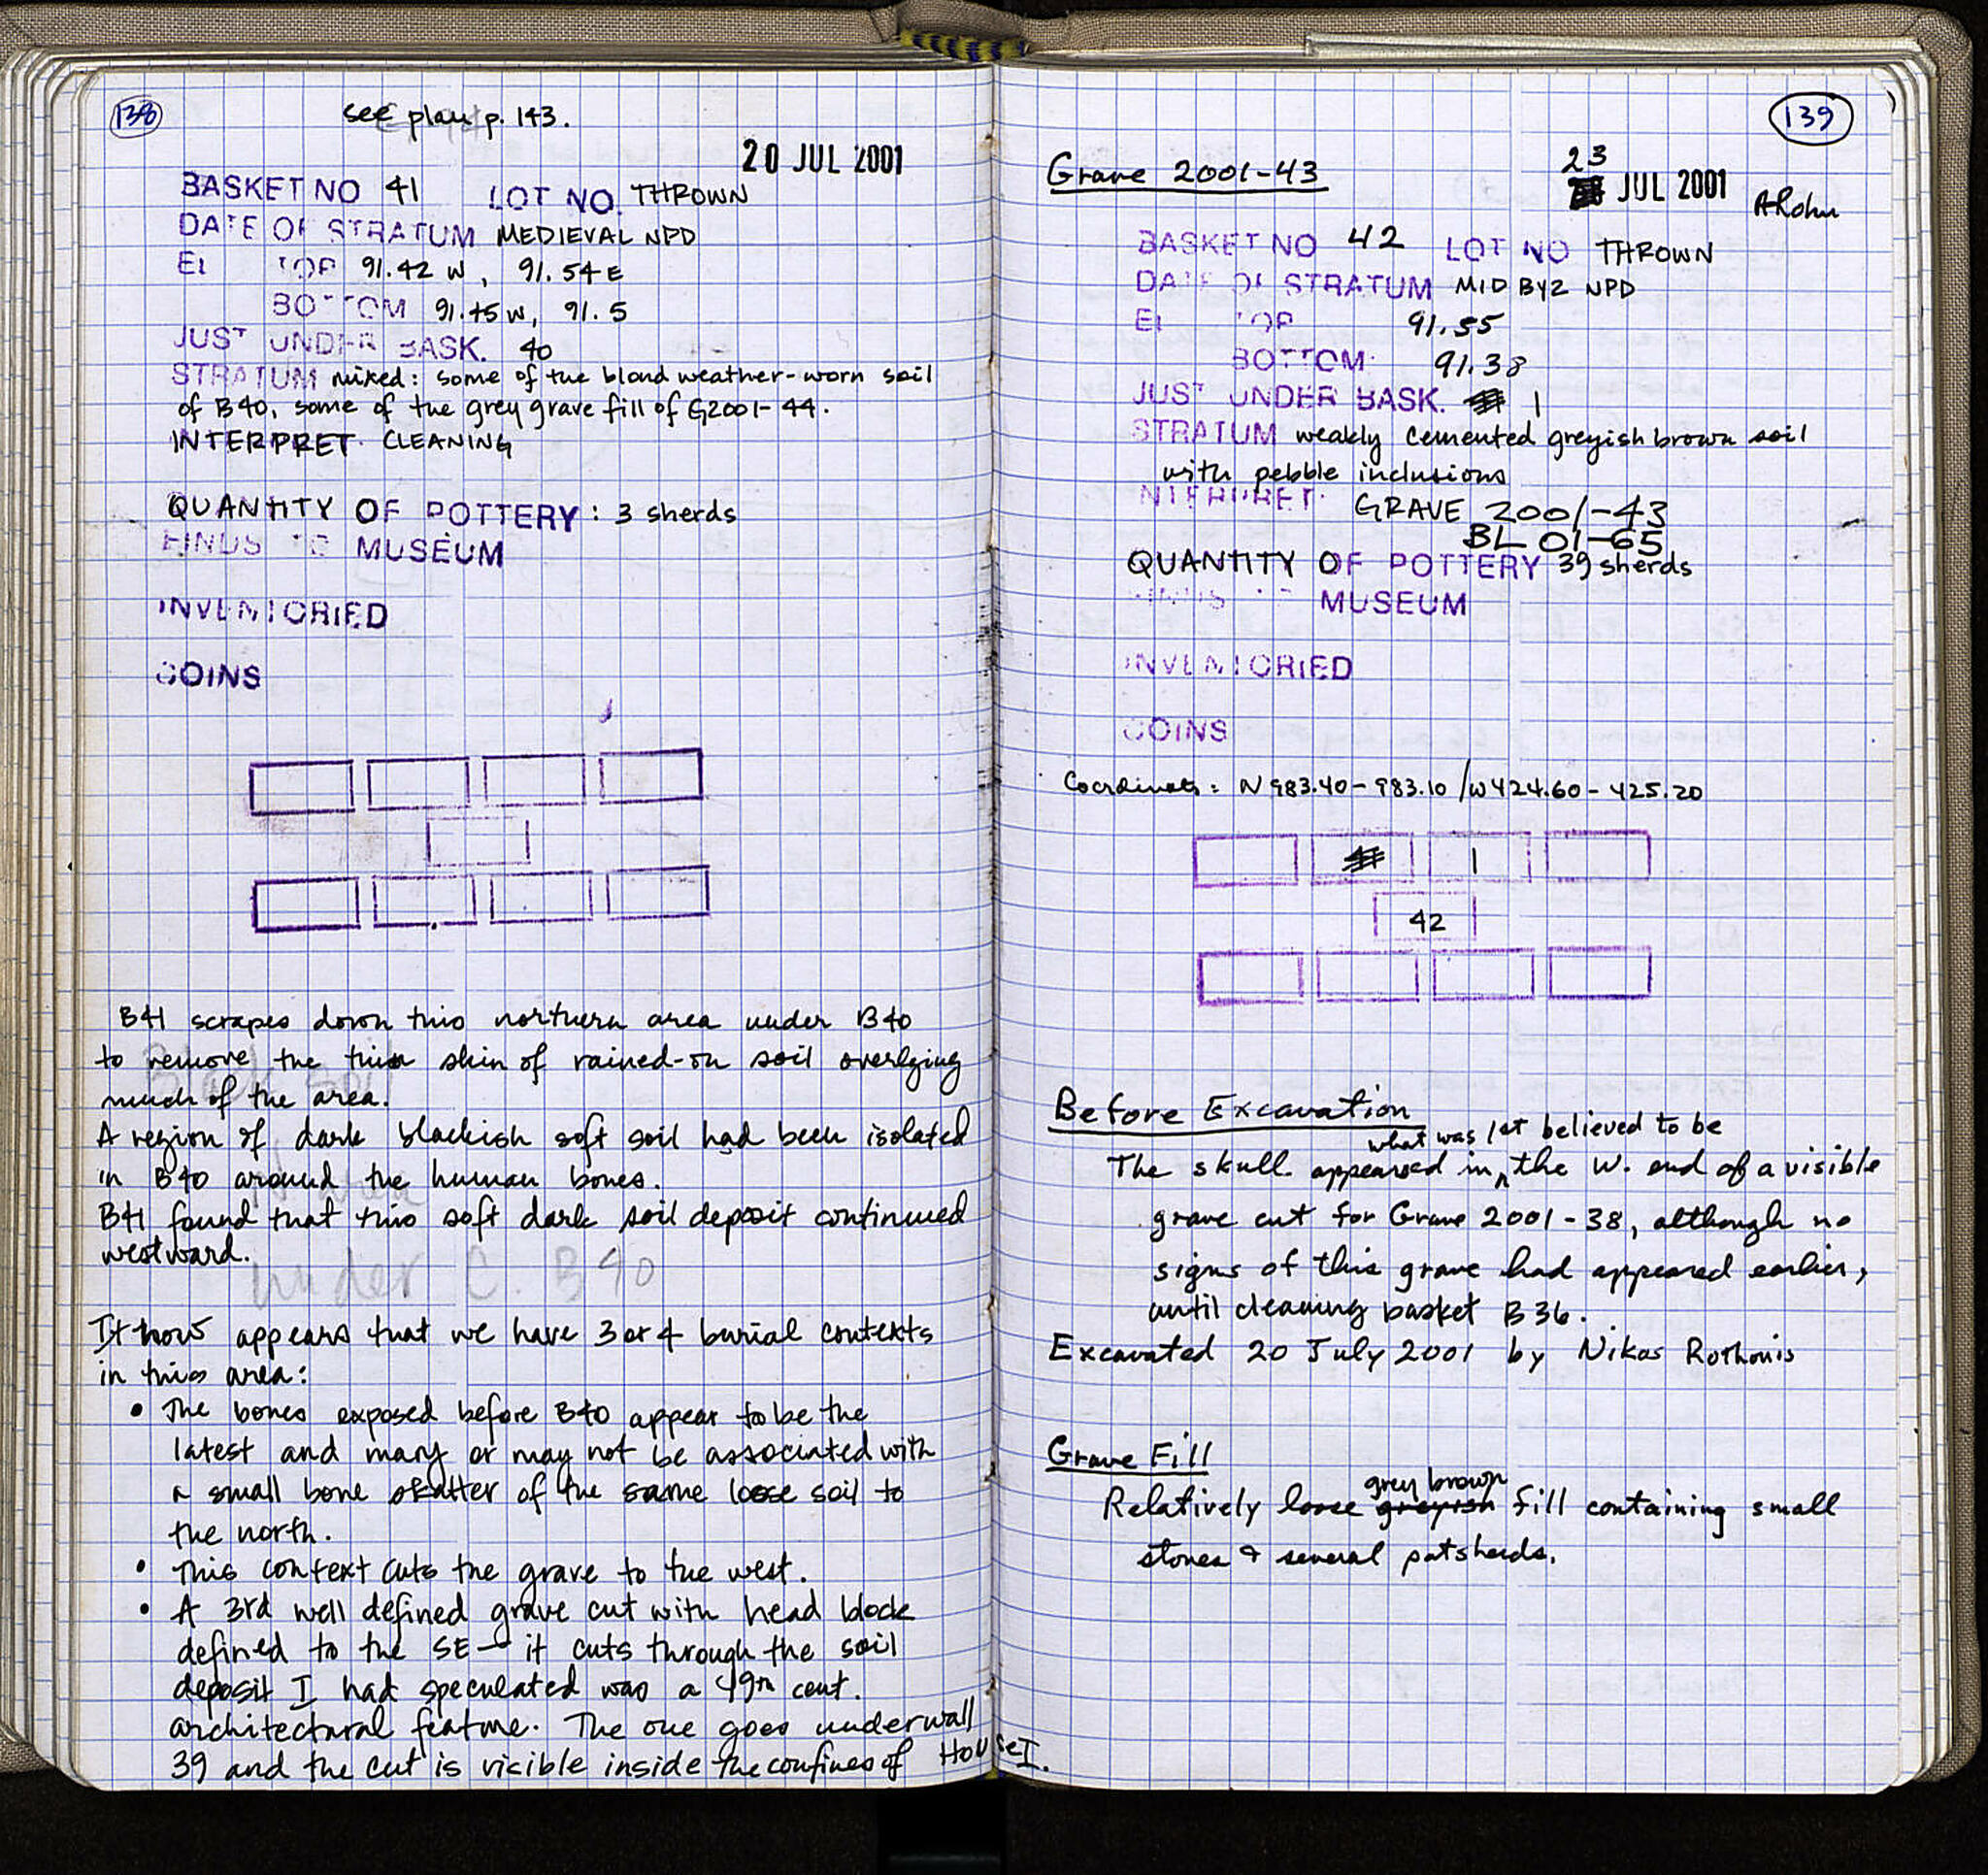 138
see plan p. 143.
20 JUL 2001
BASKET NO 41 LOT NO. THROWN
DATE OF STRATUM MEDIEVAL NPD
EL TOP 91.42 W, 91.54 E
BOTTOM 91.45 W, 91.5
JUST UNDER BASK. 40
STRATUM mixed: some of the blond weather-worn soil
of B40, some of the grey grave fill of G2001-44.
INTERPRET. CLEANING
QUANTITY OF POTTERY: 3 sherds
FINDS TO MUSEUM
INVENTORIED
COINS
B41 scrapes down this northern area under B40
to remove the thin skin of rained-on soil overlying
much of the area.
A region of dark blackish soft soil had been isolated
in B40 around the human bones.
B41 found that this soft dark soil deposit continued
westward.
under C. B40
It now appears that we have 3 or 4 burial contexts
in this area:
• The bones exposed before B40 appear to be the
latest and mary or may not be associated with
a small bone skatter of the same loose soil to
the north.
• This context cuts the grave to the west.
• A 3rd well defined grave cut with head block
defined to the SE - it cuts through the soil
deposit I had speculated was a 19th cent.
architectural feature. The one goes under wall
39 and the cut is visible inside the confines of House I.
139
Grave 2001-43
23 JUL 2001
ARohn
BASKET NO 42 LOT NO THROWN
DATE OF STRATUM MID BYZ NPD
EL TOP 91.55
BOTTOM 91.38
JUST UNDER BASK. 1
STRATUM weakly cemented greyish brown soil
with pebble inclusions
INTERPRET. GRAVE 2001-43
BL 01-65
QUANTITY OF POTTERY 39 sherds
FINDS TO MUSEUM
INVENTORIED
COINS
Coordinates: N 983.40 - 983.10 / W 424.60 - 425.20
1
42
Before Excavation
what was 1st believed to be
The skull appeared in the W. end of a visible
grave cut for Grave 2001-38, although no
signs of this grave had appeared earlier,
until cleaning basket B36.
Excavated 20 July 2001 by Nikos Rothonis
Grave Fill
grey brown
Relatively loose greyish fill containing small
stones & several potsherds.